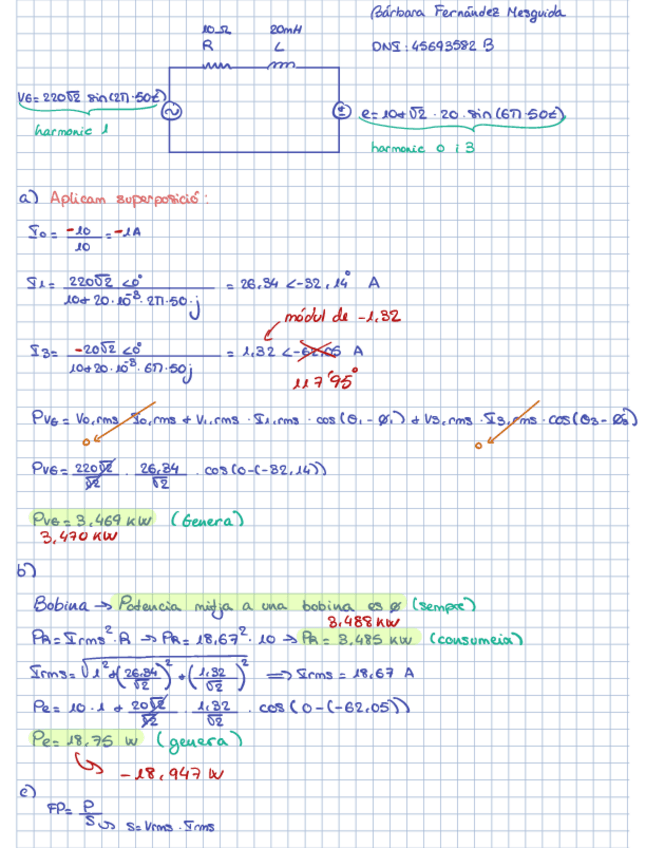 Bárbara Fernández Mesguida
10Ω 20mH
R L
DNI: 45693582 B
VG=220√2 sin(2π·50t)
harmonic 1
e=10+√2·20·sin(6π·50t)
harmonic 0 i 3
a) Aplicam superposició:
I0 = -10/10 = -1A
I1 = 220√2 <0°/(10+20·10^-3·2π·50·j) = 26,34 <-32,14° A
módul de -1,32
I3 = -20√2 <0°/(10+20·10^-3·6π·50j) = 1,32 <-62,05 A
117'95°
PVG = V0,rms · I0,rms + V1,rms · I1,rms · cos(θ1-φ1) + V3,rms · I3,rms · cos(θ3-φ3)
0 0
PVG = 220√2/√2 · 26,34/√2 · cos(0-(-32,14))
PVG = 3,469 KW (Genera)
3,470 KW
b)
Bobina → Potencia mitja a una bobina es 0 (sempre)
3,488 KW
PR = Irms²·R → PR = 18,67²·10 → PR = 3,485 KW (consumeix)
Irms = √(1²+(26,34/√2)²+(1,32/√2)²) ⇒ Irms = 18,67 A
Pe = 10·1 + 20√2/√2 · 1,32/√2 · cos(0-(-62,05))
Pe = 18,75 W (genera)
-18,947 W
c)
FP = P/S → S = Vrms · Irms